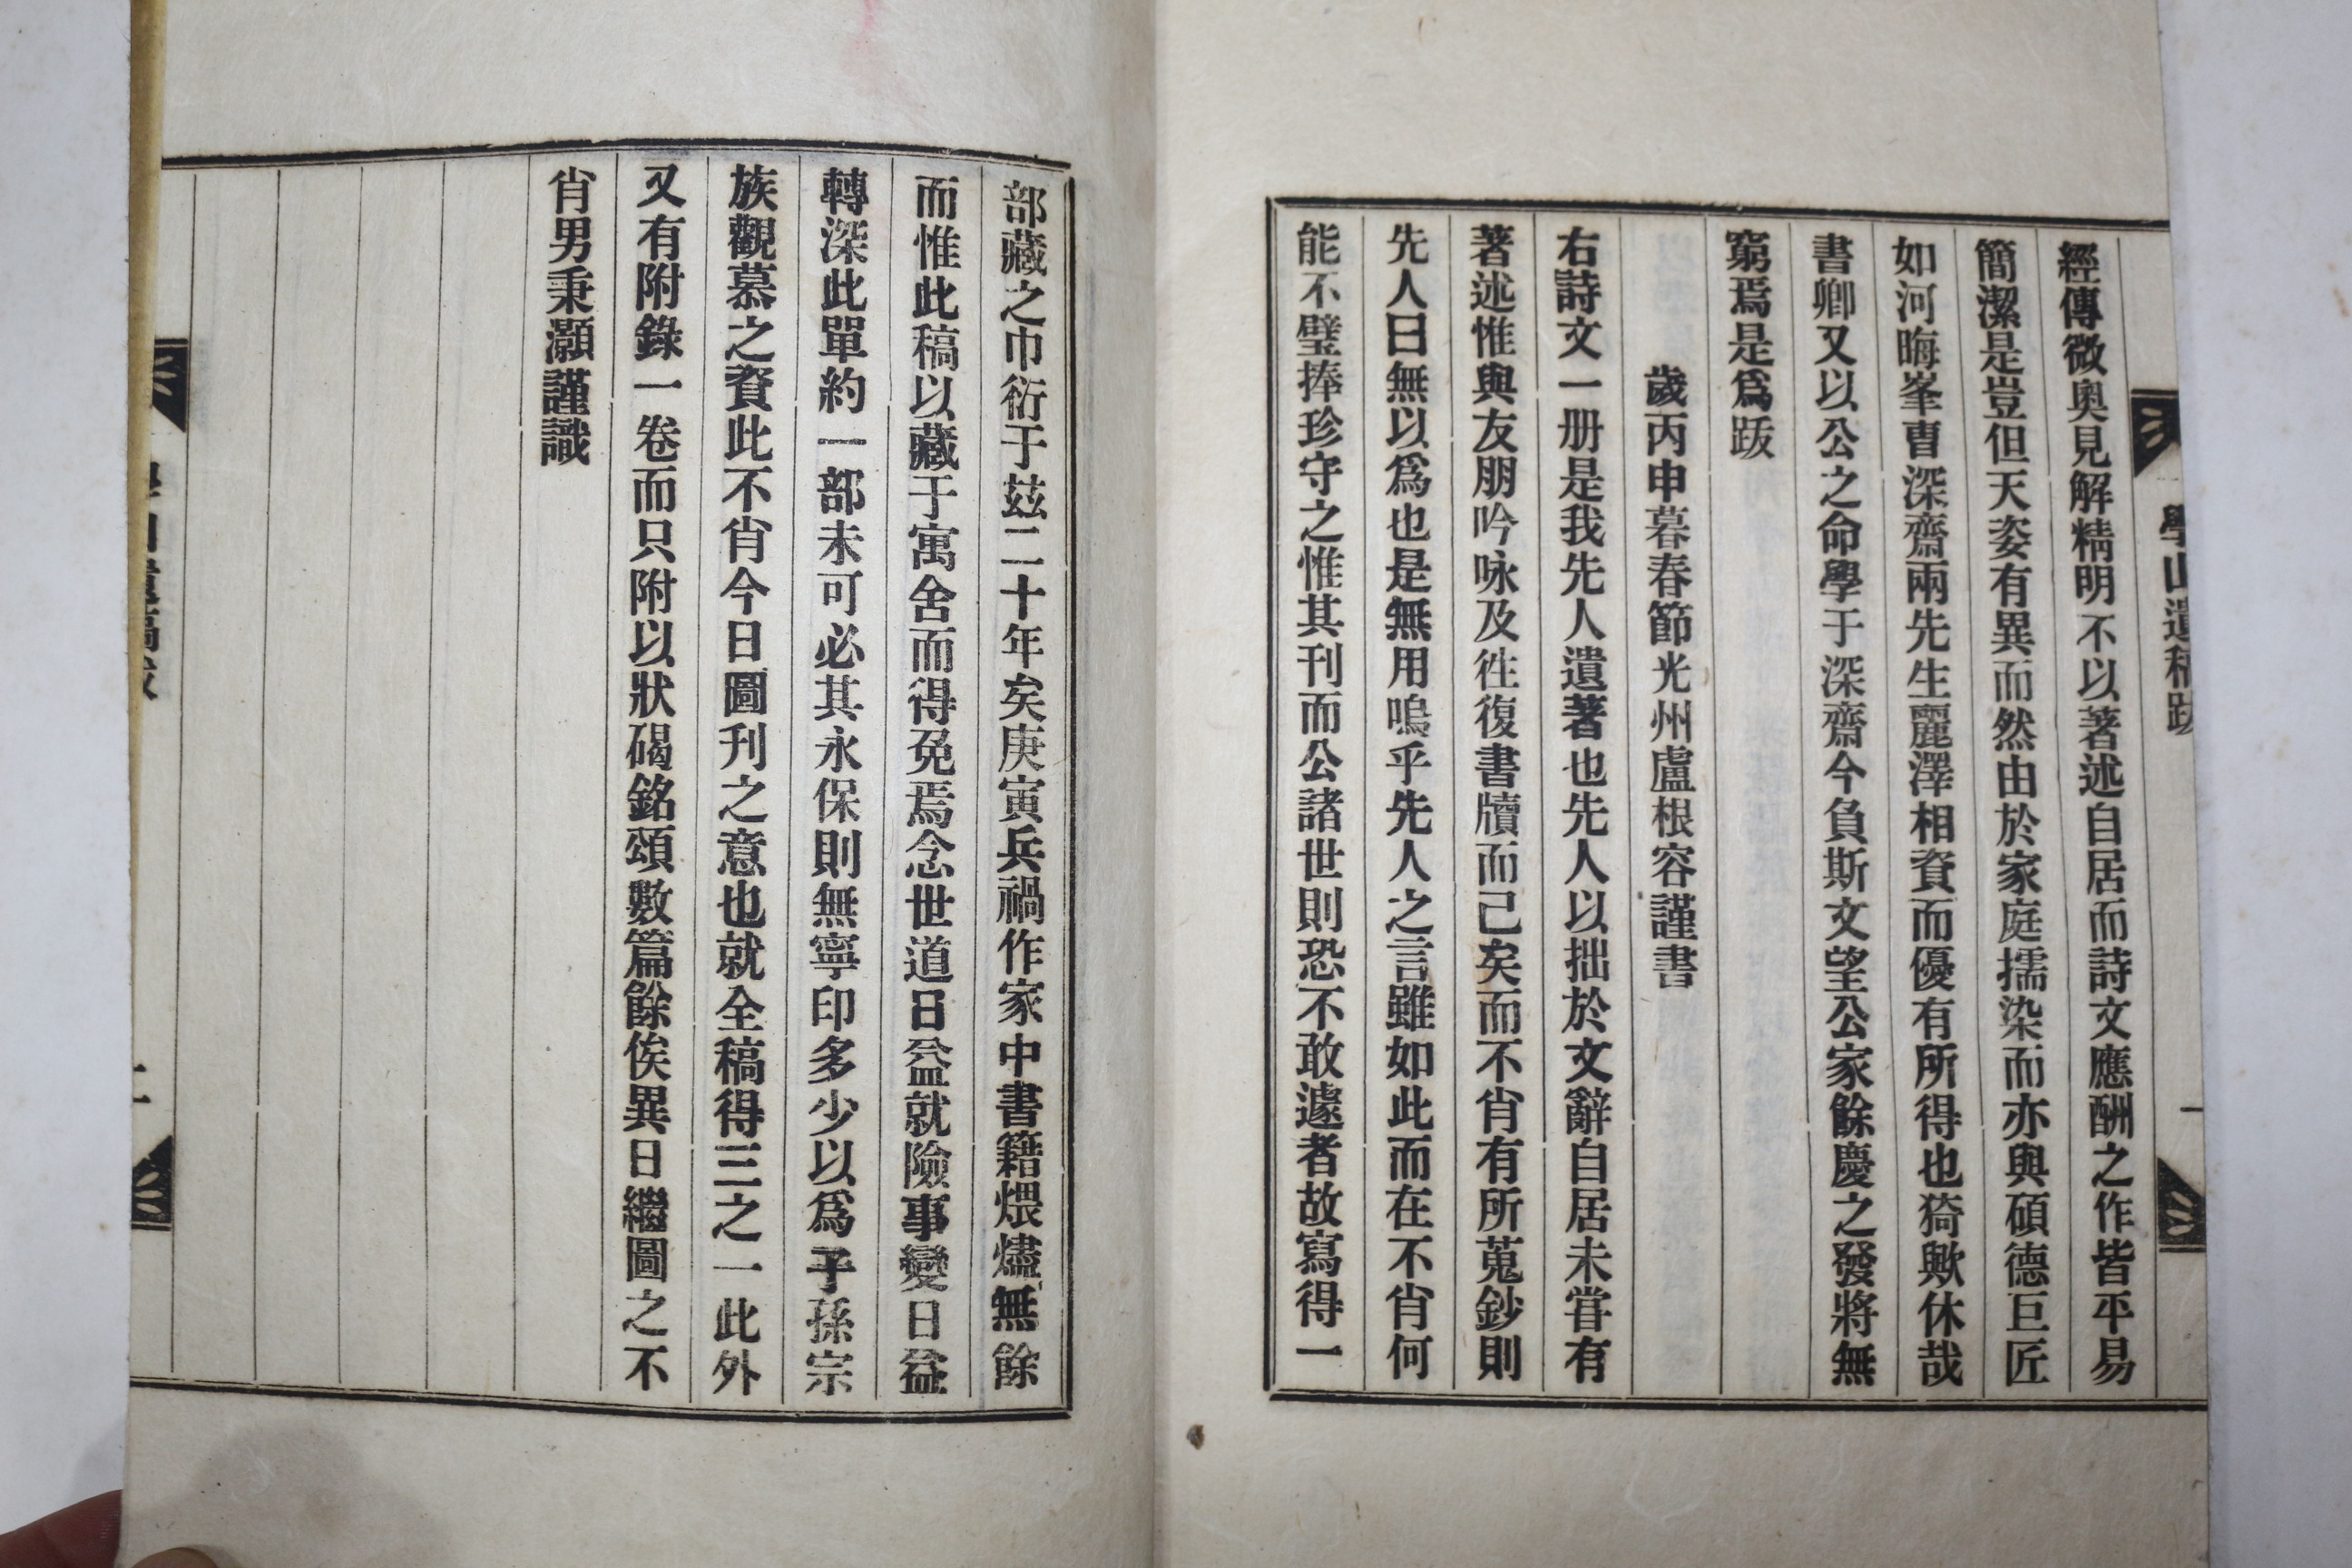 學山遺稿跋 一
經傳微奧見解精明不以著述自居而詩文應酬之作皆平易
簡潔是豈但天姿有異而然由於家庭擩染而亦與碩德巨匠
如河晦峯曺深齋兩先生麗澤相資而優有所得也猗歟休哉
書卿又以公之命學于深齋今負斯文望公家餘慶之發將無
窮焉是爲跋
歲丙申暮春節光州盧根容謹書
右詩文一册是我先人遺著也先人以拙於文辭自居未甞有
著述惟與友朋吟咏及徃復書牘而己矣而不肖有所蒐鈔則
先人曰無以爲也是無用嗚乎先人之言雖如此而在不肖何
能不璧捧珍守之惟其刊而公諸世則恐不敢遽者故寫得一
部藏之巾衍于茲二十年矣庚寅兵禍作家中書籍煨燼無餘
而惟此稿以藏于寓舍而得免焉念世道日益就險事變日益
轉深此單約一部未可必其永保則無寧印多少以爲子孫宗
族觀慕之資此不肖今日圖刊之意也就全稿得三之一此外
又有附錄一卷而只附以狀碣銘頌數篇餘俟異日繼圖之不
肖男秉灝謹識